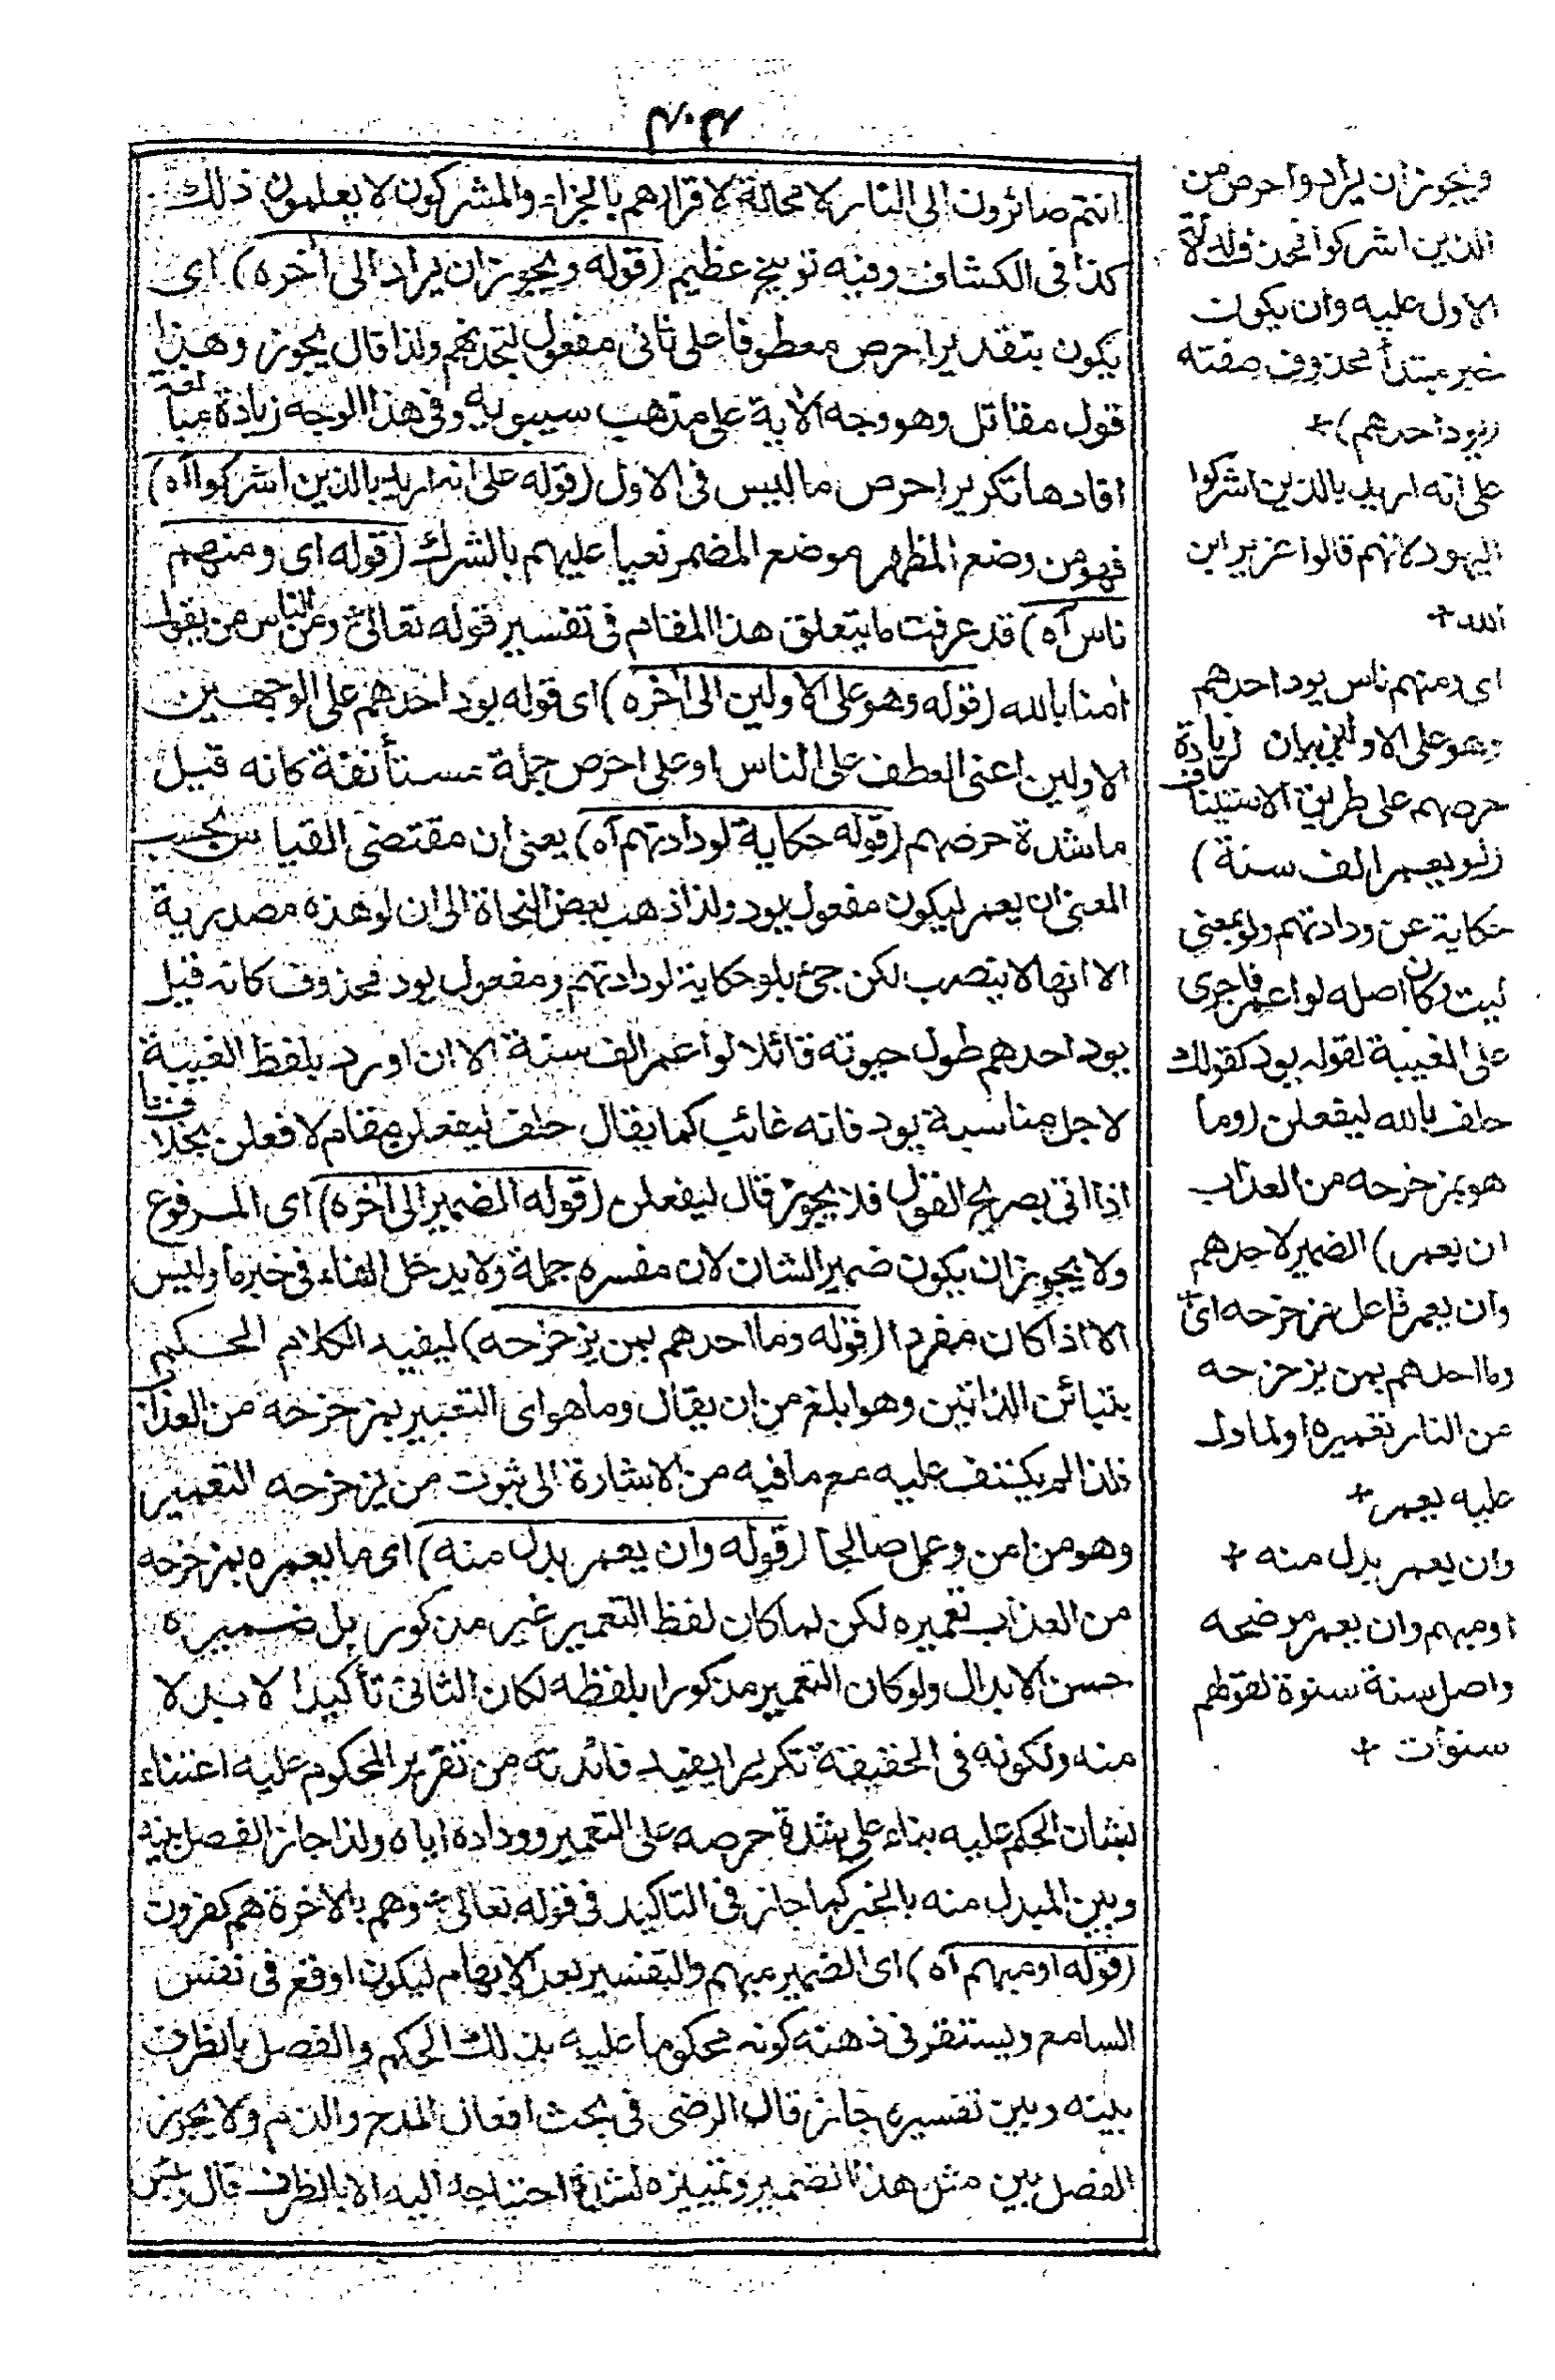 ٣٠٣
انتم صائرون الى النار لا محالة لاقرارهم بالجزاء والمشركون لا يعلمون ذلك
كذا فى الكشاف وفيه توبيخ عظيم (قوله ويجوز ان يراد الى آخره) اى
يكون بتقدير احرص معطوفا على ثانى مفعول لتجدنهم ولذا قال يجوز وهذا
قول مقاتل وهو وجه الآية على مذهب سيبويه وفى هذا الوجه زيادة مبالغة
افادها تكرير احرص ما ليس فى الاول (قوله على انه اريد بالذين اشركوا اه)
فهو من وضع المظهر موضع المضمر نعيا عليهم بالشرك (قوله اى ومنهم
ناس آه) قد عرفت ما يتعلق هذا المقام فى تفسير قوله تعالى ومن الناس من يقول
امنا بالله (قوله وهو على الاولين الى آخره) اى قوله يود احدهم على الوجهين
الاولين اعنى العطف على الناس او على احرص جملة مستأنفة كانه قيل
ما شدة حرصهم (قوله حكاية لودادتهم آه) يعنى ان مقتضى القياس بحسب
المعنى ان يعمر ليكون مفعول يود ولذا ذهب بعض النحاة الى ان لو هذه مصدرية
الا انها لا ينصب لكن جئ بلو حكاية لودادتهم ومفعول يود محذوف كانه قيل
يود احدهم طول حيوته قائلا لو اعمر الف سنة الا ان اورد بلفظ الغيبة
لاجل مناسبة يود فانه غائب كما يقال حلف ليفعلن مقام لافعلن بخلاف ما
اذا اتى بصريح القول فلا يجوز قال ليفعلن (قوله الضمير الى آخره) اى المرفوع
ولا يجوز ان يكون ضمير الشان لان مفسره جملة ولا يدخل الباء فى خبر ما وليس
الا اذا كان مفردا (قوله وما احدهم بمن يزحزحه) ليفيد الكلام الحكم
بتبائن الذاتين وهو ابلغ من ان يقال وما هو اى التعمير بمزحزحه من العذاب
فلذا لم يكتف عليه مع ما فيه من الاشارة الى ثبوت من يزحزحه التعمير
وهو من امن وعمل صالحا (قوله وان يعمر بدل منه) اى ما يعمره بمزحزحه
من العذاب تعميره لكن لما كان لفظ التعمير غير مذكور بل ضميره
حسن الابدال ولو كان التعمير مذكورا بلفظه لكان الثانى تأكيدا لا بدلا
منه ولكونه فى الحقيقة تكريرا يفيد فائدته من تقرير المحكوم عليه اعتناء
بشان الحكم عليه بناء على شدة حرصه على التعمير وودادة اياه ولذا جاز الفصل بينه
وبين المبدل منه بالخبر كما جاز فى التاكيد فى قوله تعالى وهم بالآخرة هم كفرون
(قوله او مبهم آه) اى الضمير مبهم والتفسير بعد الابهام ليكون اوقع فى نفس
السامع ويستقر فى ذهنه كونه محكوما عليه بذلك الحكم والفصل بالظرف
بينه وبين تفسيره جائز قال الرضى فى بحث افعال المدح والذم ولا يجوز
الفصل بين مثل هذا الضمير وتمييزه لشدة احتياجه اليه الا بالظرف قال وبئس
ويجوز ان يراد واحرص من
الذين اشركوا فحذف لدلالة
الاول عليه وان يكون
خبر مبتدأ محذوف صفته
(يود احدهم)+
على انه اريد بالذين اشركوا
اليهود لانهم قالوا عزير ابن
الله+
اى ومنهم ناس يود احدهم
وهو على الاولين بيان لزيادة
حرصهم على طريق الاستيناف
(لو يعمر الف سنة)
حكاية عن ودادتهم ولو بمعنى
ليت وكان اصله لو اعمر فاجرى
على الغيبة لقوله يود كقولك
حلف بالله ليفعلن (وما
هو بمزحزحه من العذاب
ان يعمر) الضمير لاحدهم
وان يعمر فاعل مزحزحه اى
وما احدهم بمن يزحزحه
من النار تعميره او لما دل
عليه يعمر+
وان يعمر بدل منه+
او مبهم وان يعمر موضحه
واصل سنة سنوة لقولهم
سنوات+